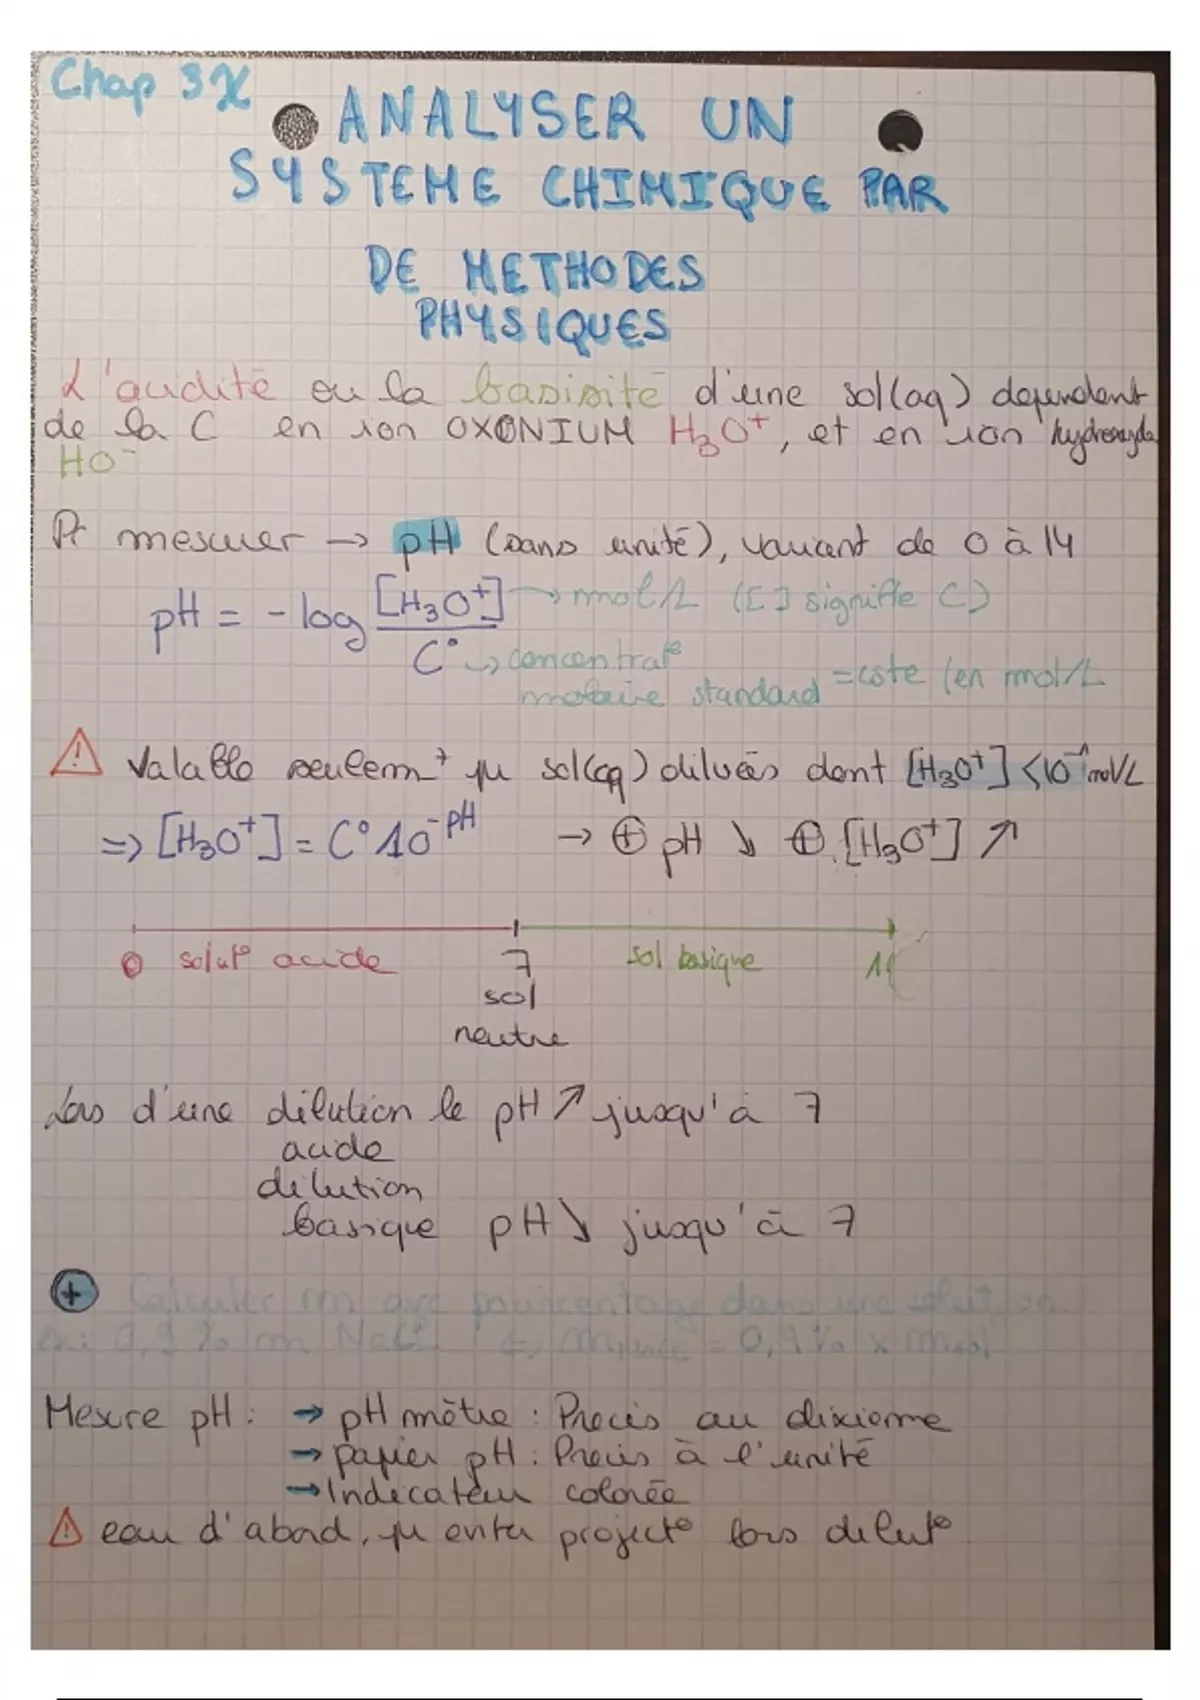 Chap 3
ANALYSER UN
SYSTEME CHIMIQUE PAR
DE METHODES
PHYSIQUES
L'acidité ou la basisité d'une sol(aq) dependent
de la C en ion OXONIUM H₃O⁺, et en ion hydroxyde
HO⁻
Pr mesurer → pH (sans unité), variant de 0 à 14
pH = - log [H₃O⁺] / C° → mol/L ([ ] signifie C)
↪ concentrat°
molaire standard = cste (en mol/L
⚠ Valable seulemt pr sol(aq) diluées dont [H₃O⁺] < 10⁻¹ mol/L
⇒ [H₃O⁺] = C° 10⁻ᵖᴴ → ⊕ pH ↘ ⊕ [H₃O⁺] ↗
0 solut° acide 7 sol basique 14
sol
neutre
Lors d'une dilution le pH ↗ jusqu'à 7
acide
dilution
basique pH ↘ jusqu'à 7
⊕ Calculer m avc pourcentage dans une solution
ex: 0,9% m NaCl = 0,9% x msol
Mesure pH : → pH mètre : Precis au dixieme
→ papier pH : Precis à l'unité
→ Indicateur colorée
⚠ eau d'abord, pr eviter project° lors dilut°